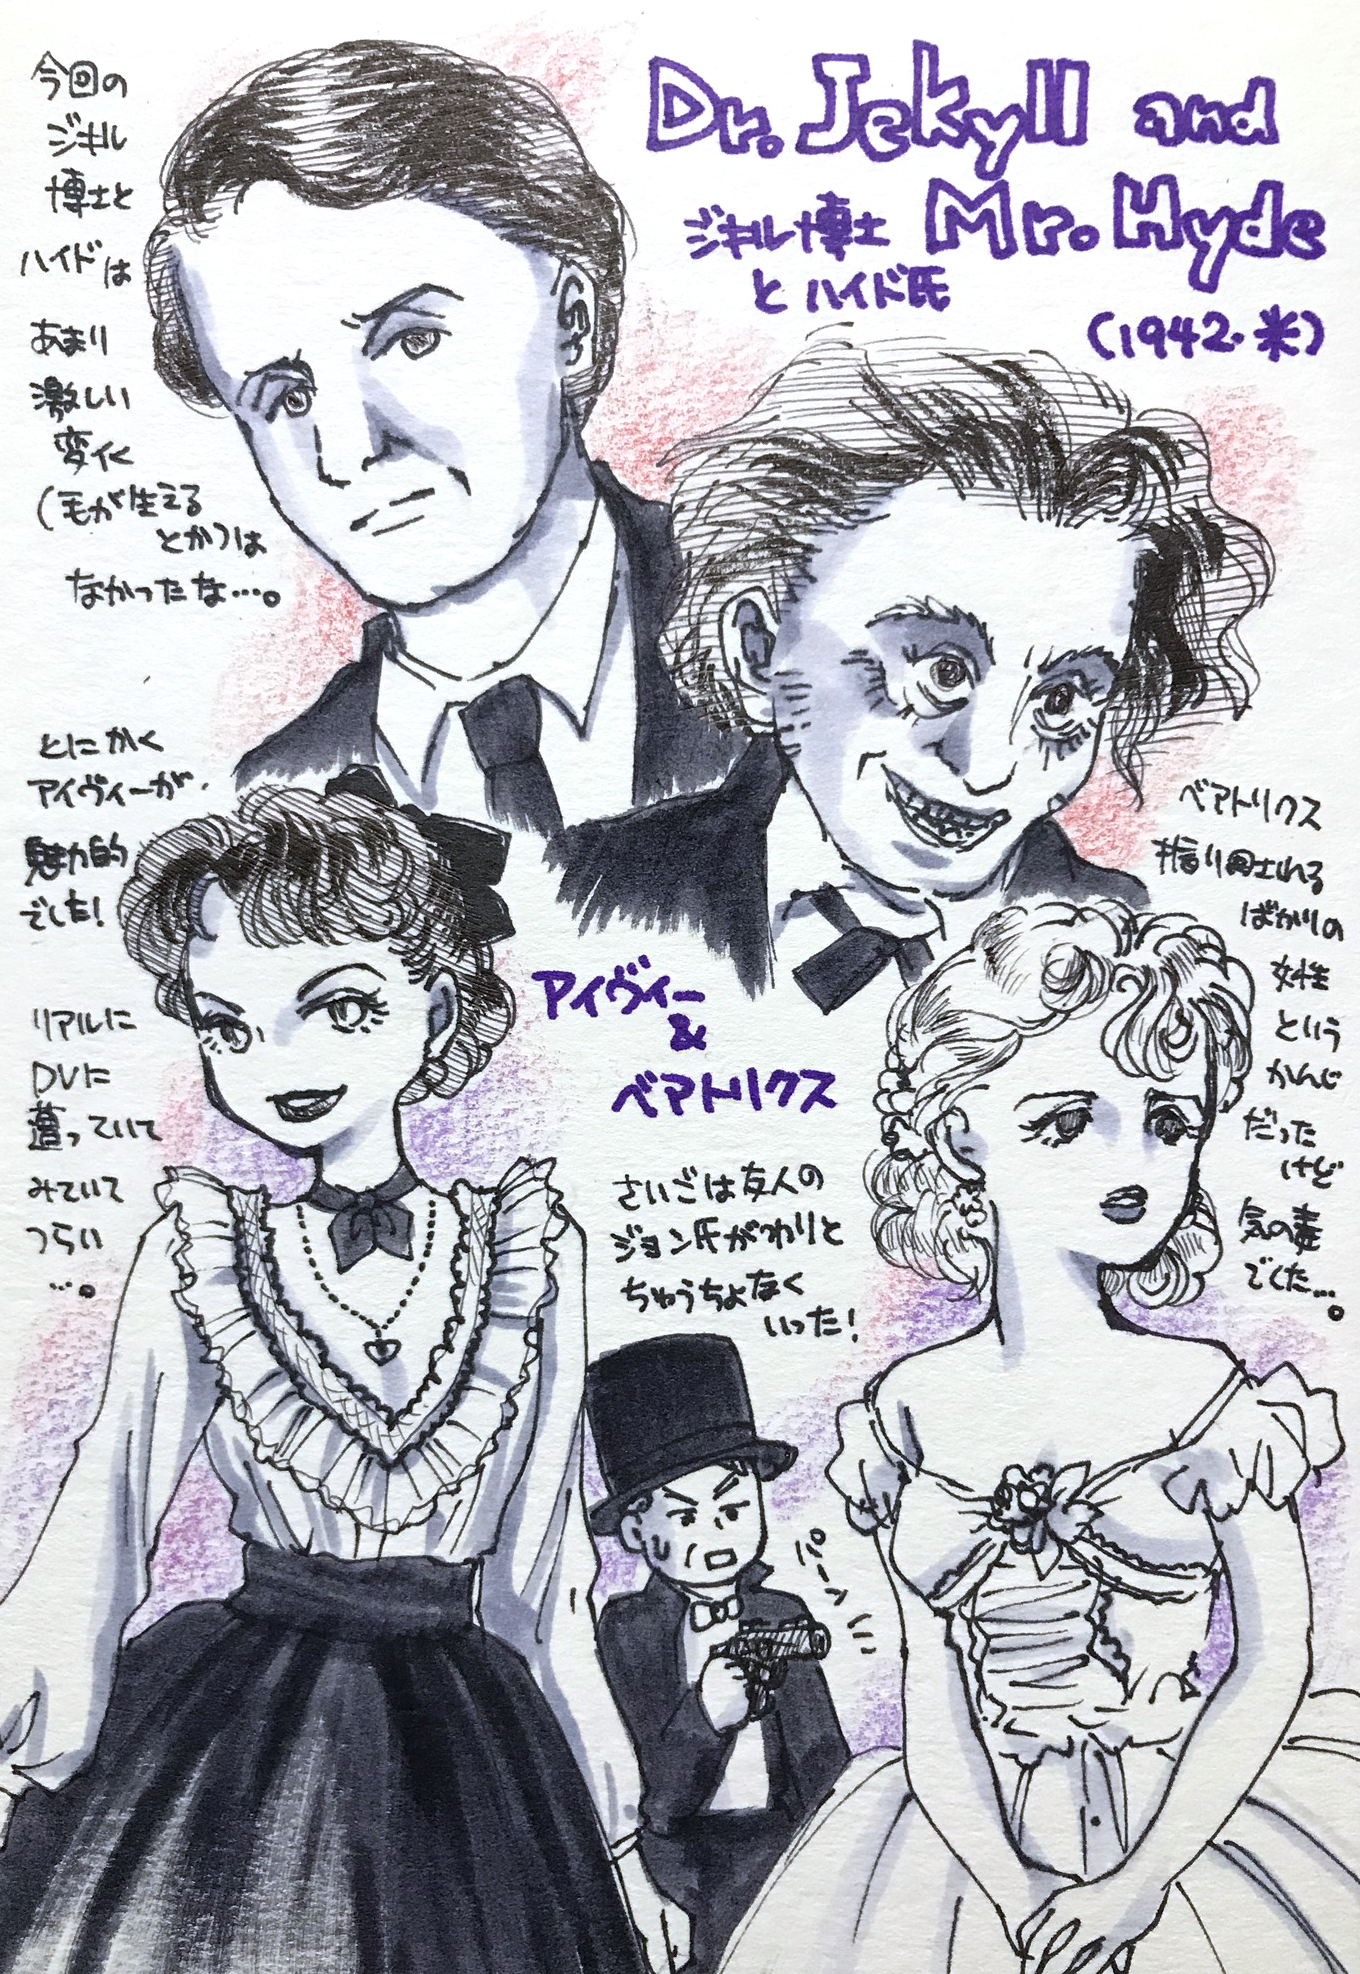 Dr. Jekyll and
Mr. Hyde
ジキル博士
とハイド氏
(1942・米)
今回の
ジキル
博士と
ハイドは
あまり
激しい
変化
(毛が生える
とか)は
なかったな…。
とにかく
アイヴィーが
魅力的
でした!
リアルに
DVに
遭っていて
みていて
つらい
…。
アイヴィー
&
ベアトリクス
さいごは友人の
ジョン氏がわりと
ちゅうちょなく
いった!
パーン
ベアトリクス
振り回される
ばかりの
女性
という
かんじ
だった
けど
気の毒
でした…。